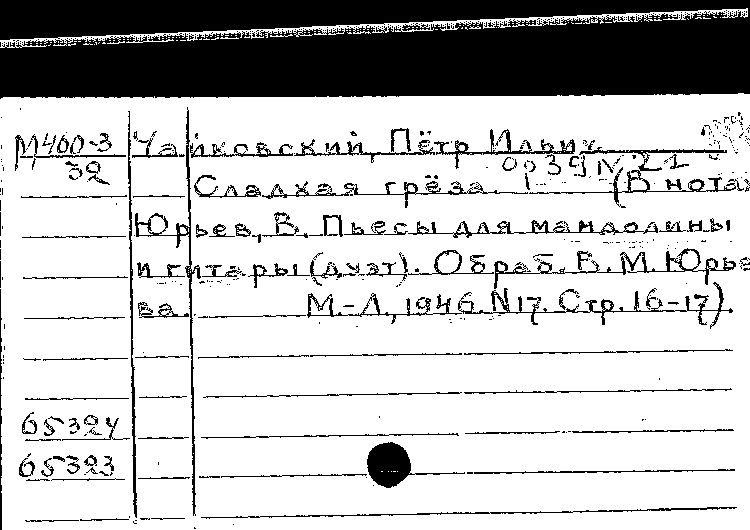 М400-3 Чайковский, Пётр Ильич.
32 ор 39 N 21
Сладкая грёза. (В нотах
Юрьев, В. Пьесы для мандолины
и гитары (дуэт). Обраб. В. М. Юрье
ва. М.-Л., 1946. N17. Стр. 16-17).
65324
65323